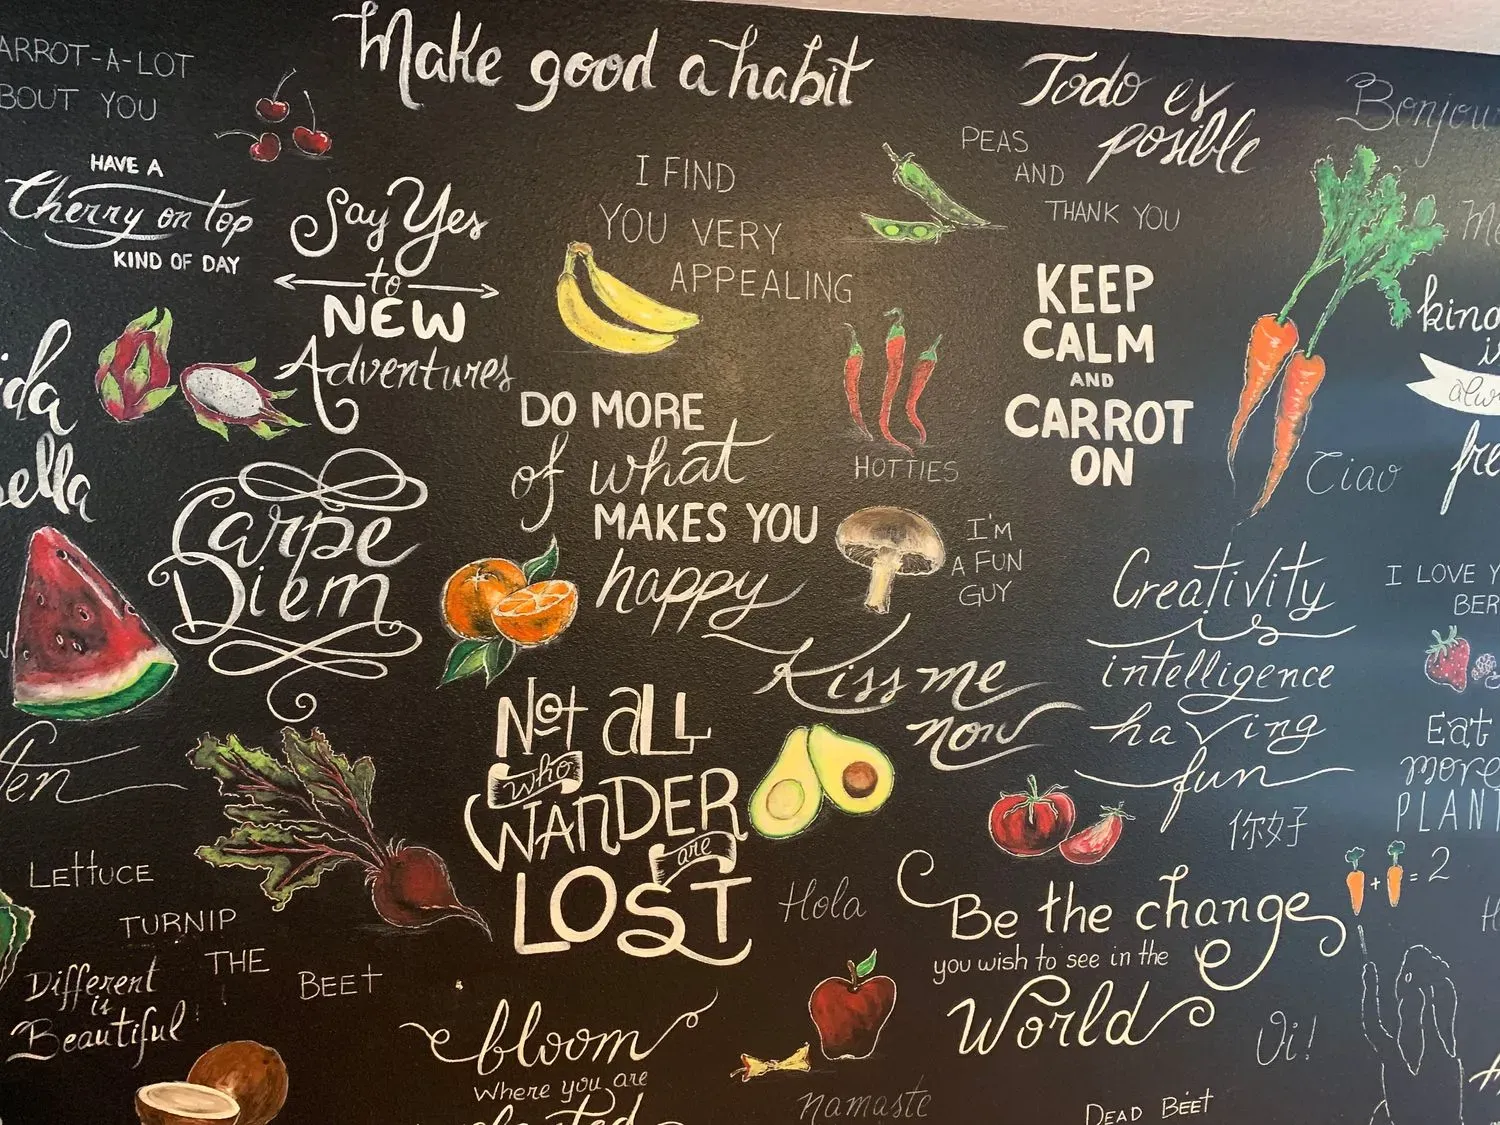 Make good a habit
ARROT-A-LOT
BOUT YOU
HAVE A
Cherry on top
KIND OF DAY
Say Yes
to
NEW
Adventures
I FIND
YOU VERY
APPEALING
Todo es
posible
PEAS
AND
THANK YOU
Bonjou
KEEP
CALM
AND
CARROT
ON
kind
alw
fre
Ciao
ida
ella
Carpe
Diem
DO MORE
of what
MAKES YOU
happy
HOTTIES
I'M
A FUN
GUY
Kiss me
now
Creativity
is
intelligence
having
fun
你好
I LOVE Y
BER
Eat
more
PLANT
+ = 2
Not all
who
WANDER
are
LOST
Hola
Be the change
you wish to see in the
World
Oi!
LETTUCE
TURNIP
THE
BEET
Different
is
Beautiful
bloom
Where you are
planted
namaste
DEAD BEET